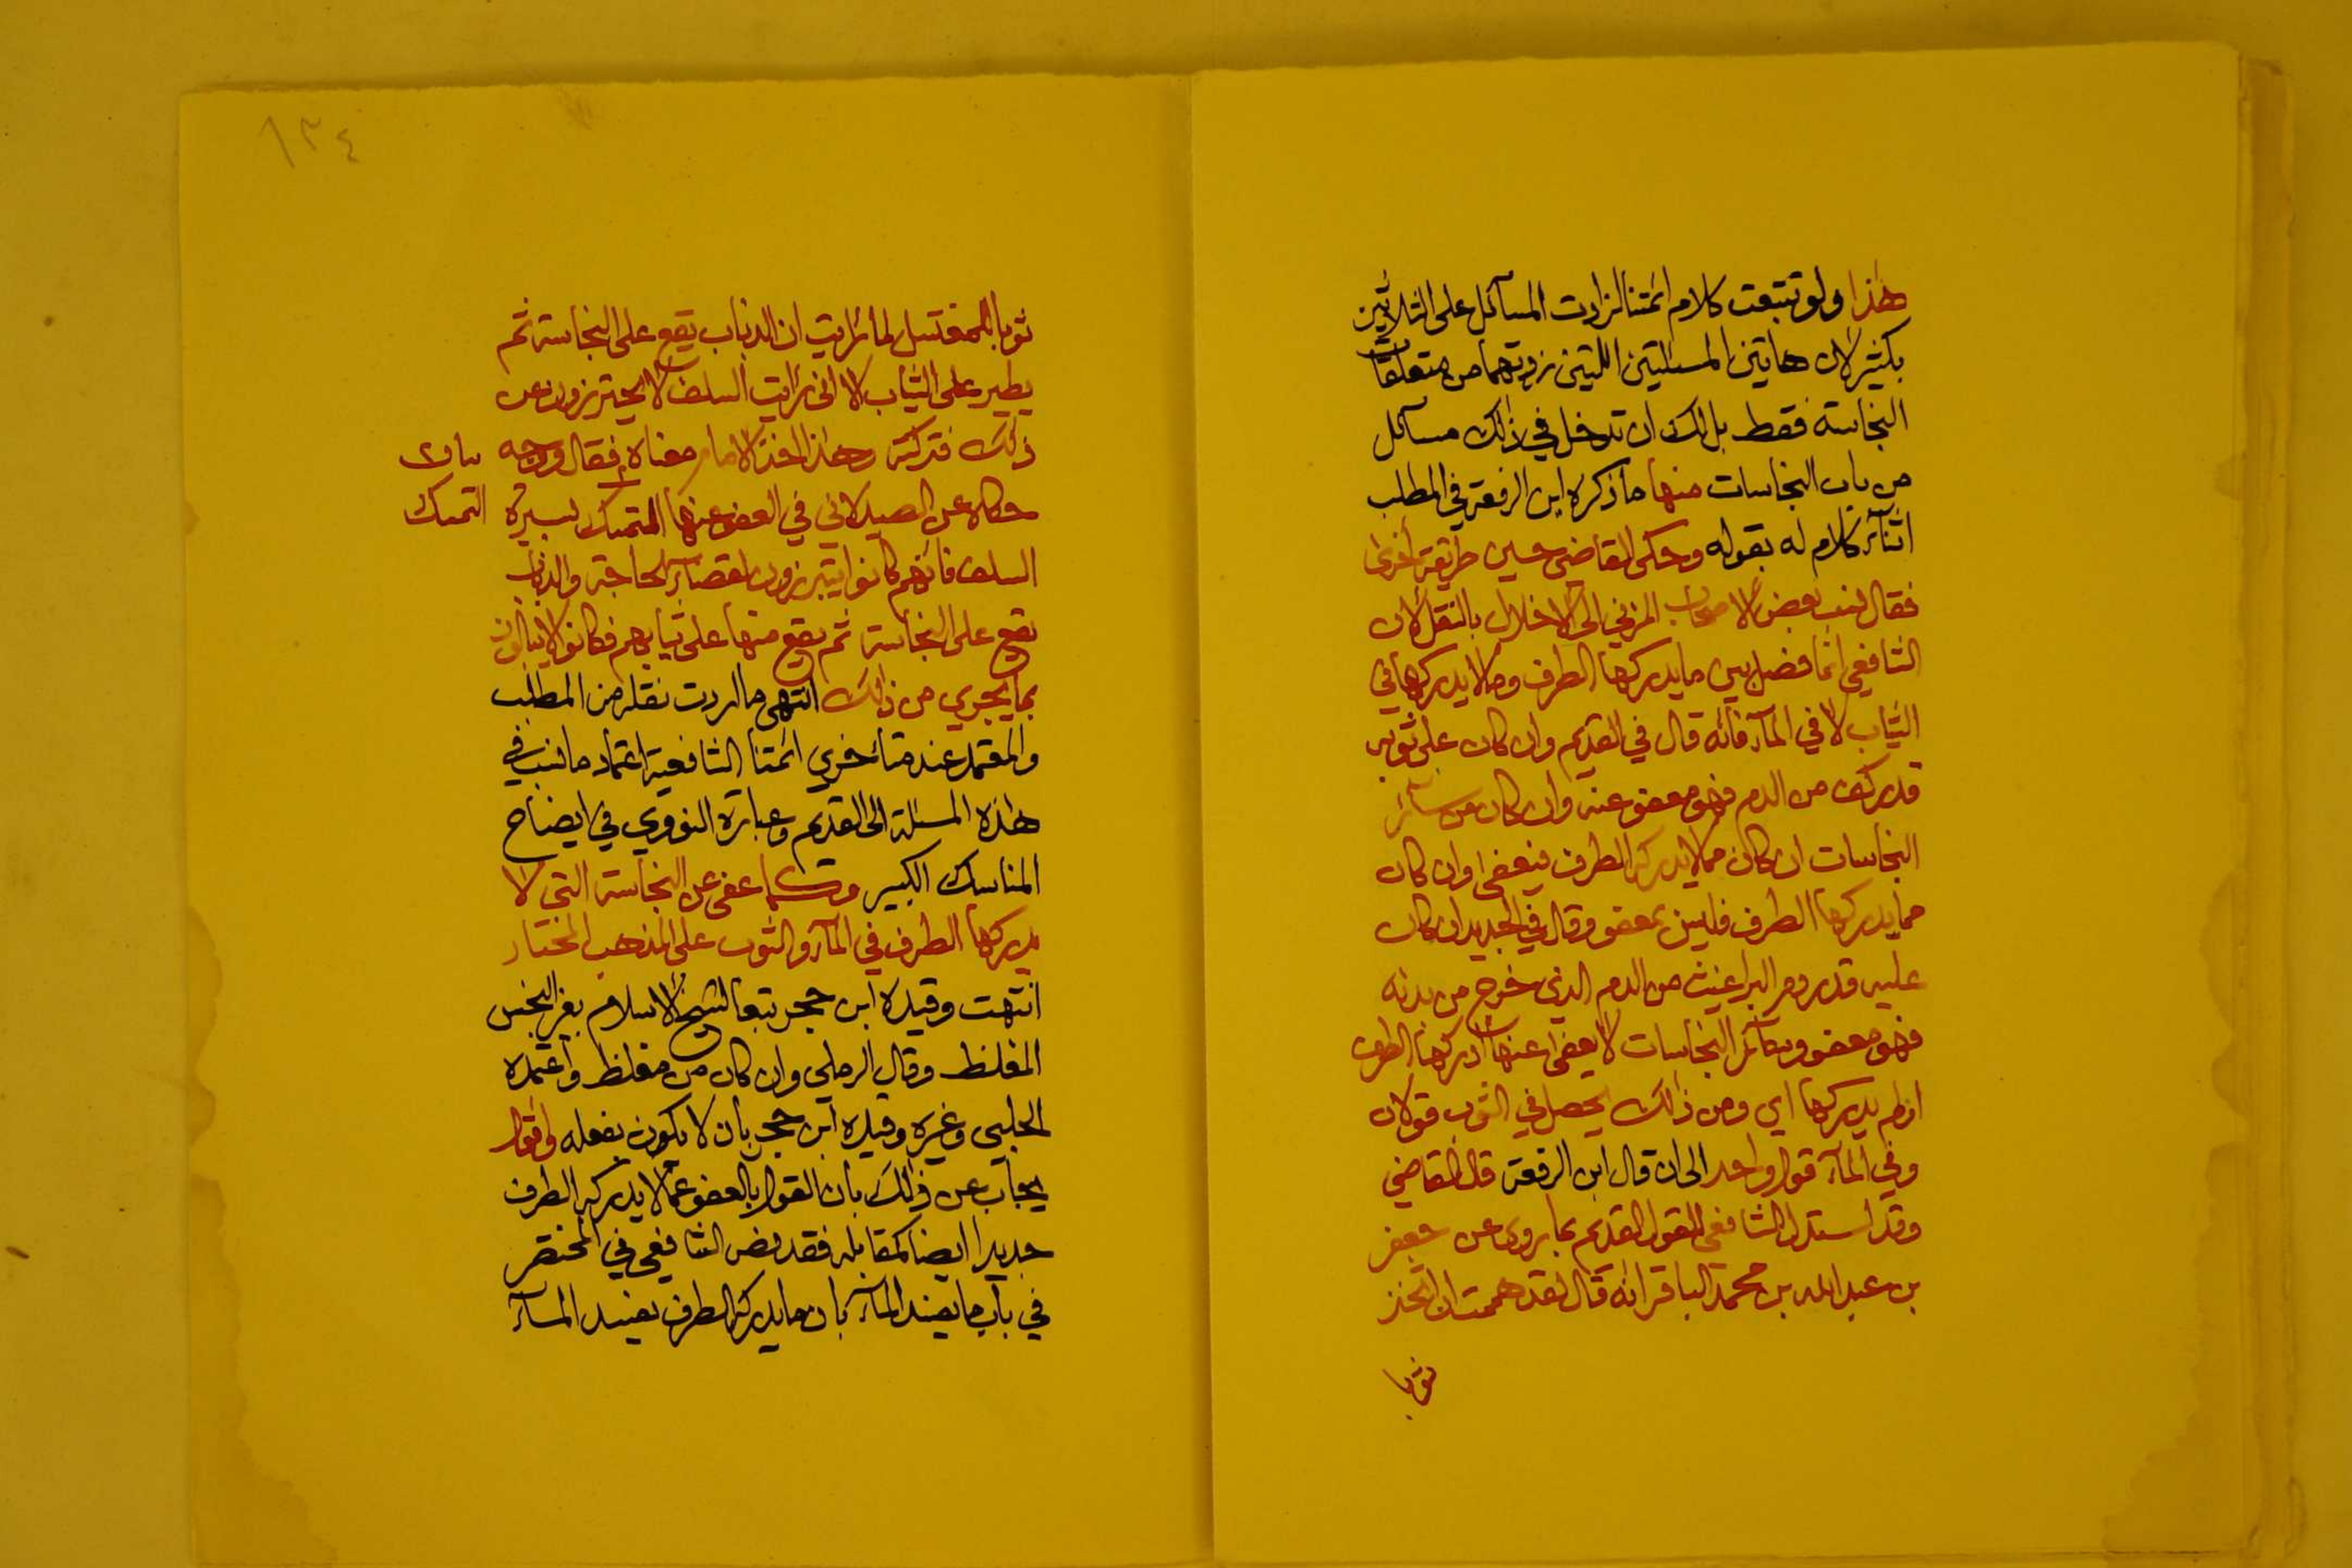 هٰذا ولو تتبعت كلام ائمتنا لزادت المسآئل على الثلاثين
بكثير لان هاتين المسئلتين اللتين زدتهما من متعلقات
النجاسة فقط بل لك ان تدخل في ذٰلك مسآئل
من باب النجاسات منها ما ذكره ابن الرفعة في المطلب
اثنآء كلام له بقوله وحكى القاضي حسين طريقة اخرى
فقال نسب بعض الاصحاب المزني الى الاخلال بالنقل لان
الشافعي انما فصل بين ما يدركها الطرف وما لا يدركها في
الثياب لا في المآء فانه قال في القديم وان كان على ثوبه
قدر كف من الدم فهو معفو عنه وان كان من سآئر
النجاسات ان كان مما لا يدركه الطرف فيعفى وان كان
مما يدركها الطرف فليس بمعفو وقال في الجديد ان كان
عليه قدر دم البراغيث من الدم الذي خرج من بدنه
فهو معفو وسآئر النجاسات لا يعفى عنها ادركها الطرف
او لم يدركها اي ومن ذٰلك يحصل في الثوب قولان
وفي المآء قول واحد الى ان قال ابن الرفعة قال القاضي
وقد استدل الشافعي للقول القديم بما روى عن جعفر
بن عبد الله بن محمد الباقر انه قال لقد هممت ان اتخذ
ثوبا
١٣٤
ثوبا للمغتسل لما رايت ان الذباب يقع على النجاسة ثم
يطير على الثياب لا اني رايت السلف لا يحترزون عن
ذٰلك فتركته وهٰذا اخذ الامام معناه فقال وجه
حكاه عن الصيدلاني في العفو عنها المتمسك بسيرة
التمسك
السلف فانهم كانوا يتبرزون لقضآء الحاجة والذباب
يقع على النجاسة ثم يقع منها على ثيابهم فكانوا لا يبالون
بما يجري من ذٰلك انتهى ما اردت نقله من المطلب
والمعتمد عند متأخري ائمتنا الشافعية اعتماد ما نسب في
هٰذه المسئلة الى القديم وعبارة النووي في ايضاح
المناسك الكبير عفى عن النجاسة التي لا
يدركها الطرف في المآء والثوب على المذهب المختار
انتهت وقيده ابن حجر تبعا لشيخ الاسلام بغير النجس
المغلظ وقال الرملي وان كان من مغلظ واعتمده
الحلبي وغيره وقيده ابن حجر بان لا يكون بفعله واقول
يجاب عن ذٰلك بان القول بالعفو عما لا يدركه الطرف
جديد ايضا كمقابله فقد نص الشافعي في المختصر
في باب ما يفسد المآء بان ما يدركه الطرف يفسد المآء